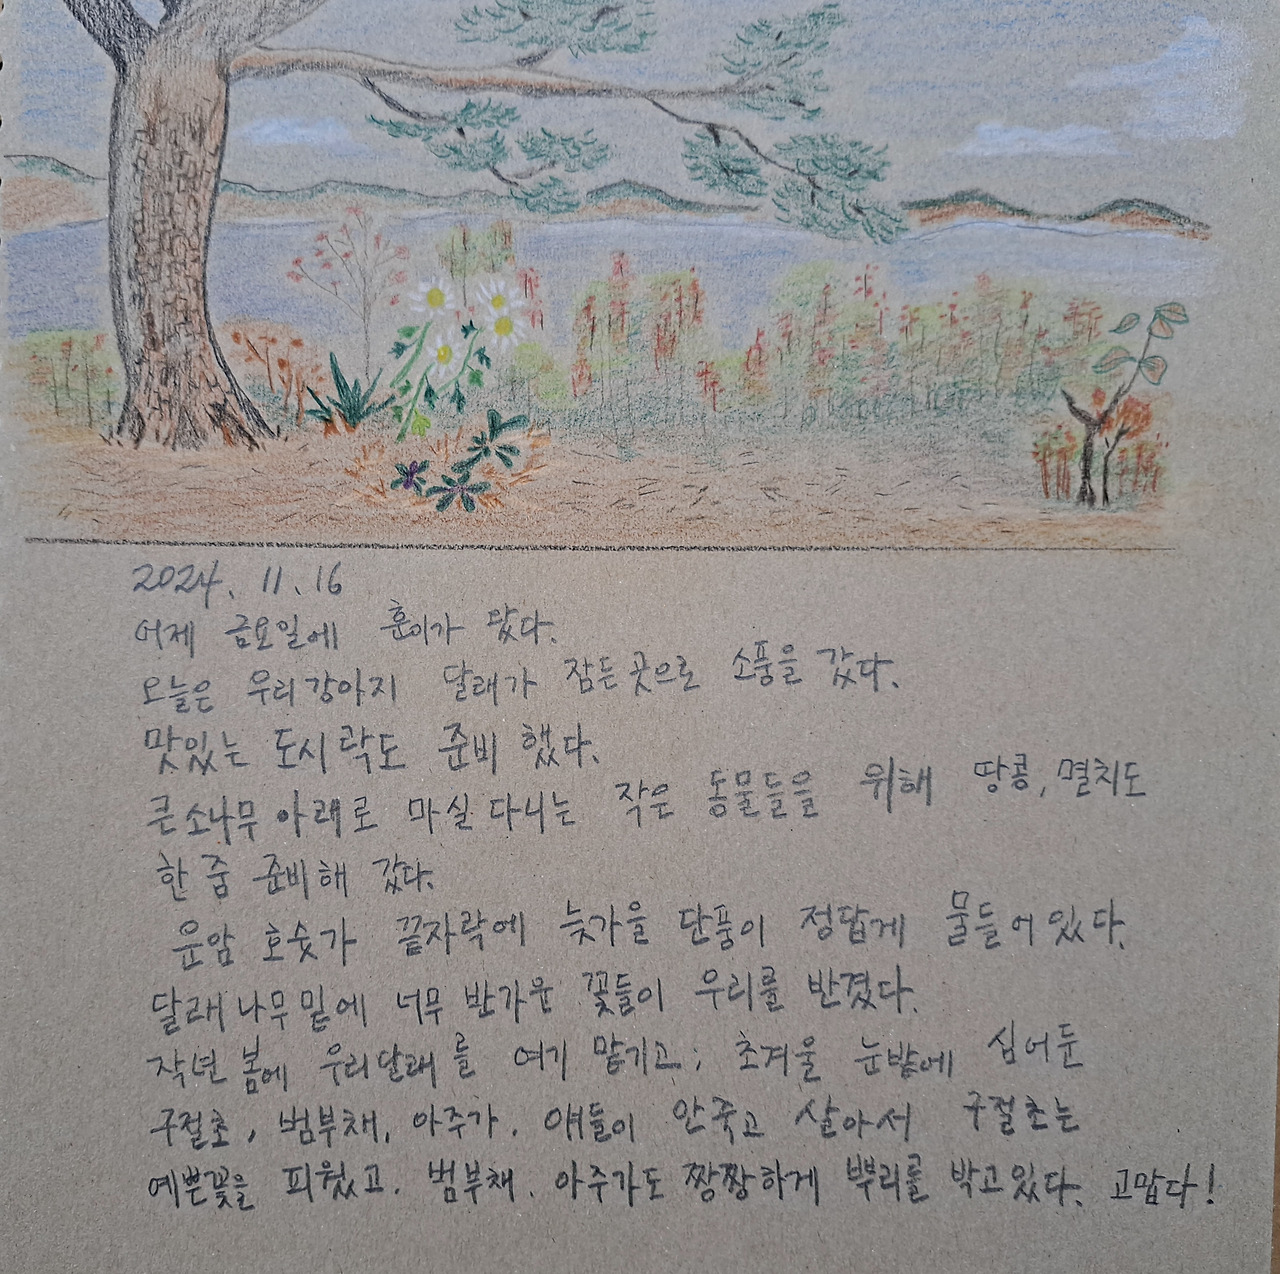 2024. 11. 16
어제 금요일에 훈이가 왔다.
오늘은 우리강아지 달래가 잠든곳으로 소풍을 갔다.
맛있는 도시락도 준비 했다.
큰소나무 아래로 마실 다니는 작은 동물들을 위해 땅콩, 멸치도
한 줌 준비해 갔다.
운암 호숫가 끝자락에 늦가을 단풍이 정답게 물들어있다.
달래나무밑에 너무 반가운 꽃들이 우리를 반겼다.
작년 봄에 우리달래를 여기 맡기고; 초겨울 눈밭에 심어둔
구절초, 범부채, 아주가. 얘들이 안죽고 살아서 구절초는
예쁜꽃을 피웠고. 범부채. 아주가도 짱짱하게 뿌리를 박고있다. 고맙다!